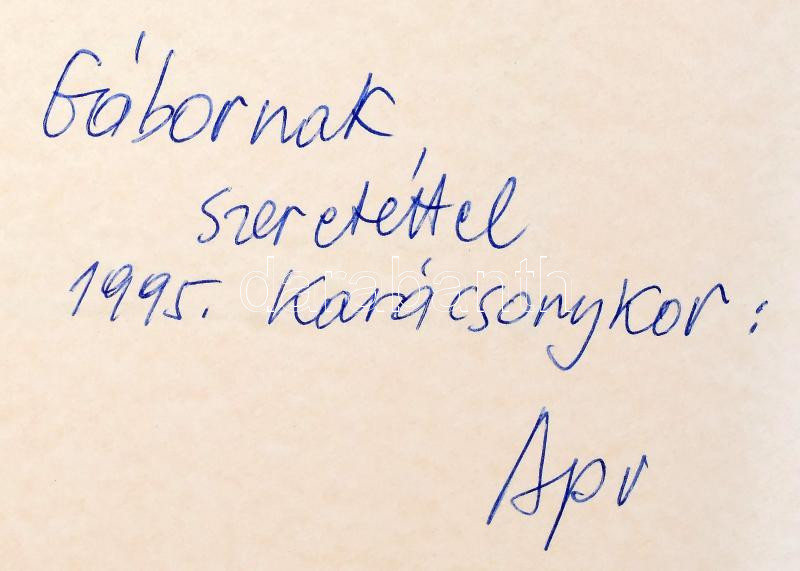 Gábornak
szeretettel
1995. Karácsonykor:
darabanth